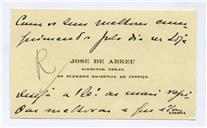 Com os seus melhores cum
primentos pelo dia
R/
JOSÉ DE ABREU
DIRECTOR GERAL
DO SUPREMO TRIBUNAL DE JUSTIÇA
as mais
das melhoras a
LISBOA